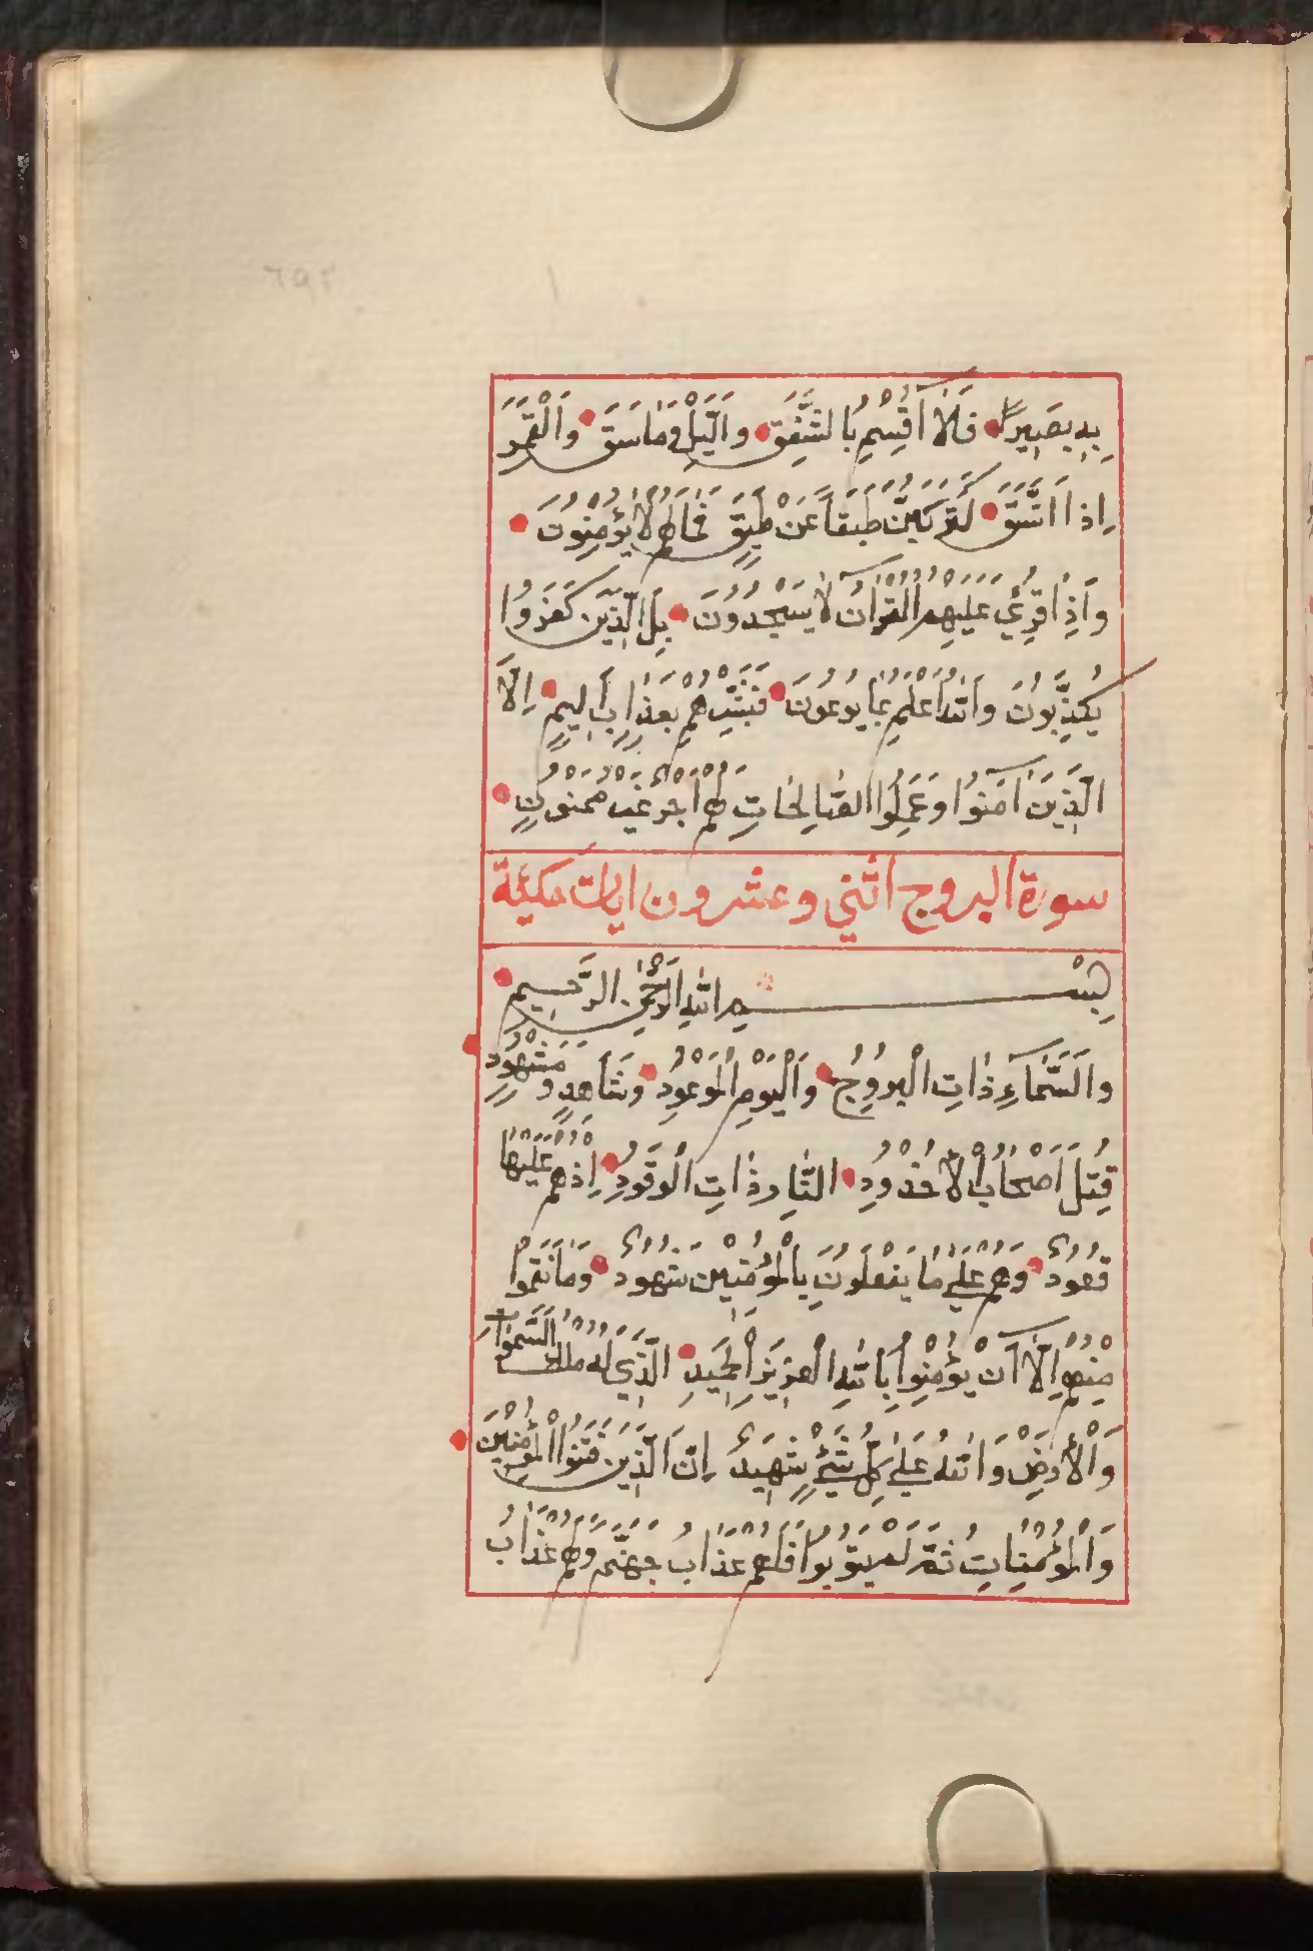 بِهِ بَصِيرًا فَلَآ اُقْسِمُ بِالشَّفَقِ وَالَّيْلِ وَمَا وَسَقَ وَالْقَمَرِ
اِذَا اتَّسَقَ لَتَرْكَبُنَّ طَبَقاً عَنْ طَبَقٍ فَمَا لَهُمْ لَا يُؤْمِنُونَ
وَاِذَا قُرِئَ عَلَيْهِمُ الْقُرْآنُ لَا يَسْجُدُونَ بَلِ الَّذِينَ كَفَرُوا
يُكَذِّبُونَ وَاللّٰهُ اَعْلَمُ بِمَا يُوعُونَ فَبَشِّرْهُمْ بِعَذَابٍ اَلِيمٍ اِلَّا
الَّذِينَ اٰمَنُوا وَعَمِلُوا الصَّالِحَاتِ لَهُمْ اَجْرٌ غَيْرُ مَمْنُونٍ
سورة البروج اثنى وعشرون ايات مكيئة
بِسْمِ اللّٰهِ الرَّحْمٰنِ الرَّحِيمِ
وَالسَّمَآءِ ذَاتِ الْبُرُوجِ وَالْيَوْمِ الْمَوْعُودِ وَشَاهِدٍ وَمَشْهُودٍ
قُتِلَ اَصْحَابُ الْاُخْدُودِ النَّارِ ذَاتِ الْوَقُودِ اِذْ هُمْ عَلَيْهَا
قُعُودٌ وَهُمْ عَلَىٰ مَا يَفْعَلُونَ بِالْمُؤْمِنِينَ شُهُودٌ وَمَا نَقَمُوا
مِنْهُمْ اِلَّآ اَنْ يُؤْمِنُوا بِاللّٰهِ الْعَزِيزِ الْحَمِيدِ الَّذِي لَهُ مُلْكُ السَّمٰوَاتِ
وَالْاَرْضِ وَاللّٰهُ عَلَىٰ كُلِّ شَيْءٍ شَهِيدٌ اِنَّ الَّذِينَ فَتَنُوا الْمُؤْمِنِينَ
وَالْمُؤْمِنَاتِ ثُمَّ لَمْ يَتُوبُوا فَلَهُمْ عَذَابُ جَهَنَّمَ وَلَهُمْ عَذَابُ